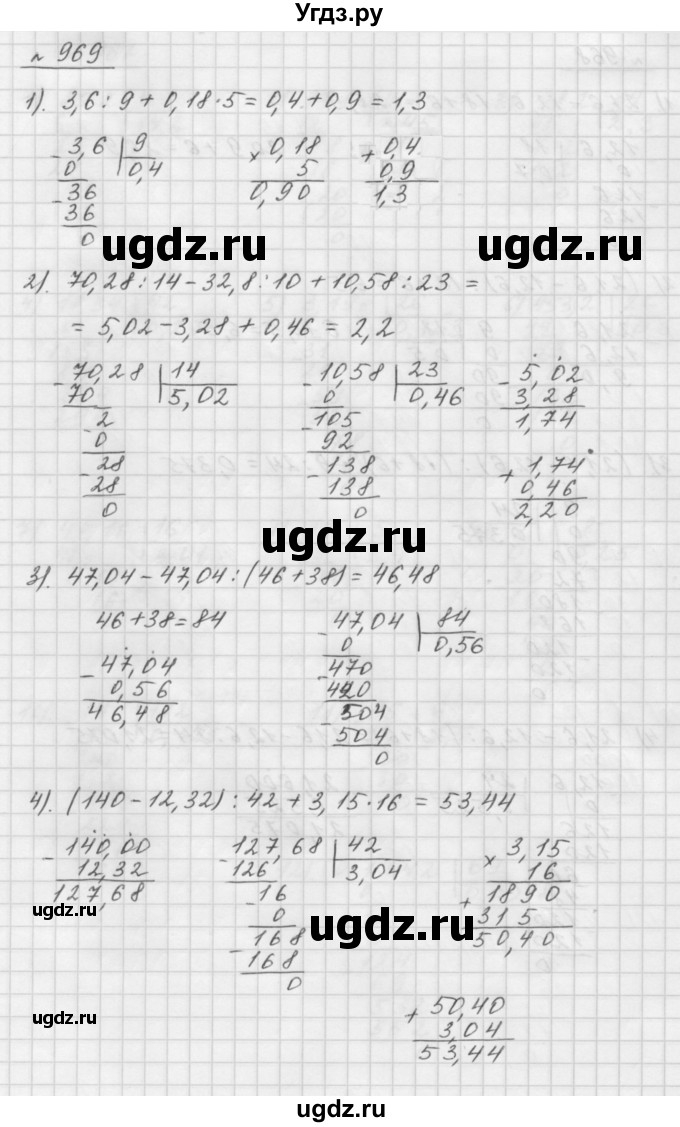 Угдз.ру
№ 969
1). 3,6 : 9 + 0,18 · 5 = 0,4 + 0,9 = 1,3
- 3,6 | 9    × 0,18    + 0,4
0 | 0,4    5    0,9
- 36    0,90    1,3
36
0
ugdz.ru
ugdz.ru
2). 70,28 : 14 - 32,8 : 10 + 10,58 : 23 =
= 5,02 - 3,28 + 0,46 = 2,2
- 70,28 | 14    - 10,58 | 23    - 5,02
70 | 5,02    0 | 0,46    3,28
- 2    - 105    1,74
0    92
- 28    - 138    + 1,74
28    138    0,46
0    0    2,20
ugdz.ru
3). 47,04 - 47,04 : (46 + 38) = 46,48
46 + 38 = 84    - 47,04 | 84
0 | 0,56
- 47,04    - 470
0,56    420
46,48    - 504
504
0
4). (140 - 12,32) : 42 + 3,15 · 16 = 53,44
- 140,00    - 127,68 | 42    × 3,15
12,32    126 | 3,04    16
127,68    - 16    + 1890
0    315
- 168    50,40
168
0
ugdz.ru
ugdz.ru
ugdz.ru
+ 50,40
3,04
53,44
ugdz.ru